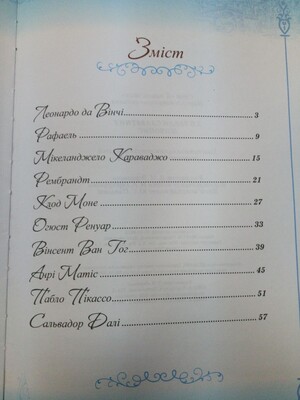 Зміст
Леонардо да Вінчі 3
Рафаель 9
Мікеланджело Караваджо 15
Рембрандт 21
Клод Моне 27
Оґюст Ренуар 33
Вінсент Ван Гог 39
Анрі Матіс 45
Пабло Пікассо 51
Сальвадор Далі 57